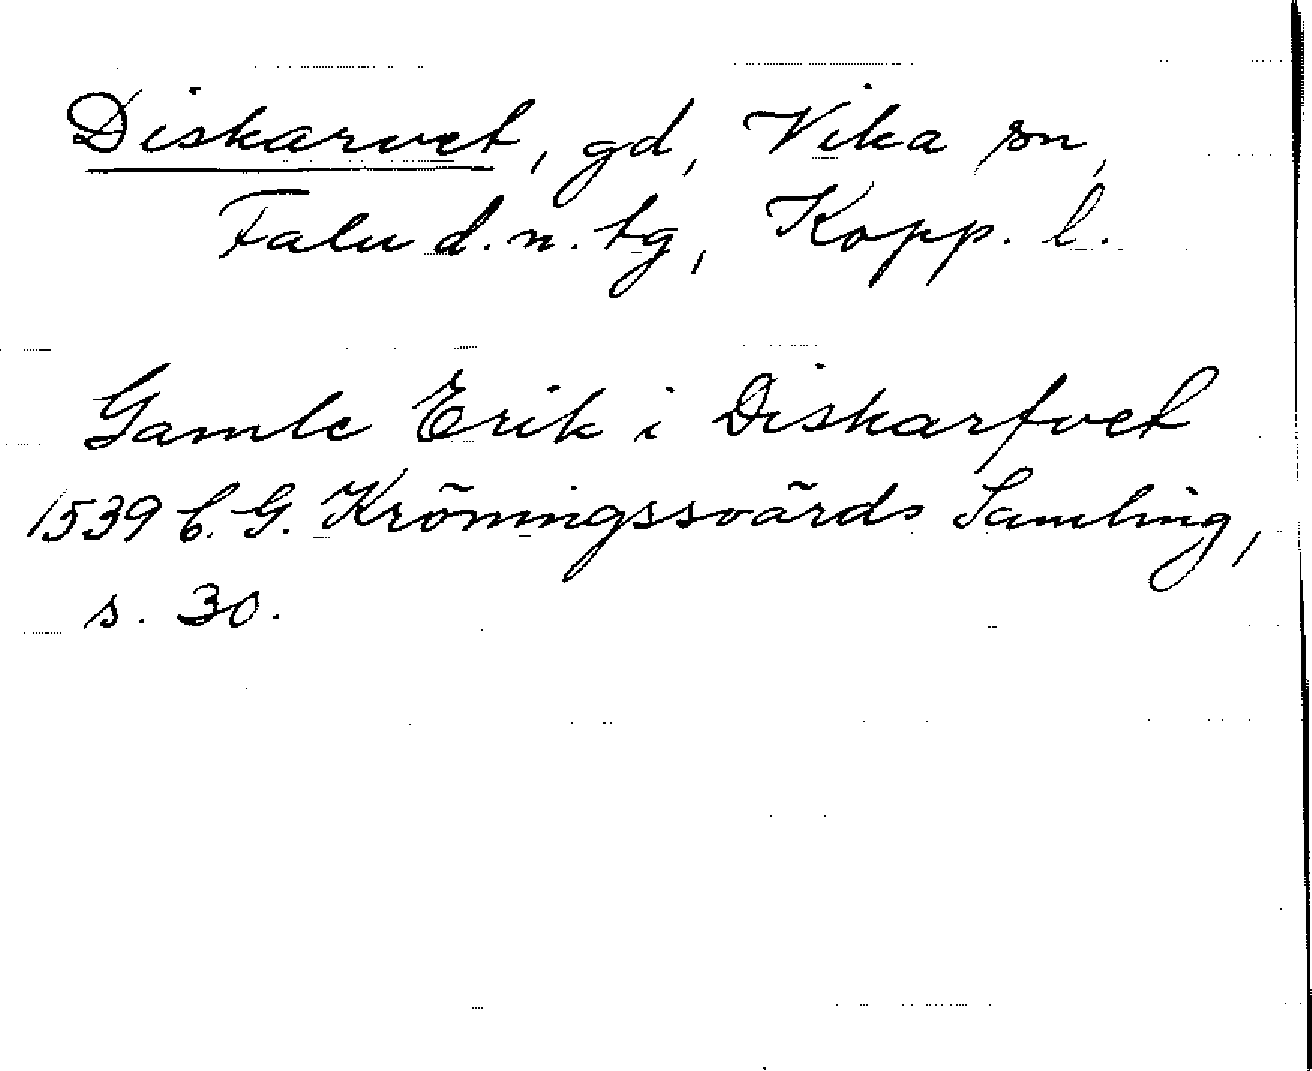 Diskarvet, gd, Vika sn,
Falu d.n. tg, Kopp. l.
Gamle Erik i Diskarfvet
1539 C. G. Kröningssvärds Samling,
s. 30.